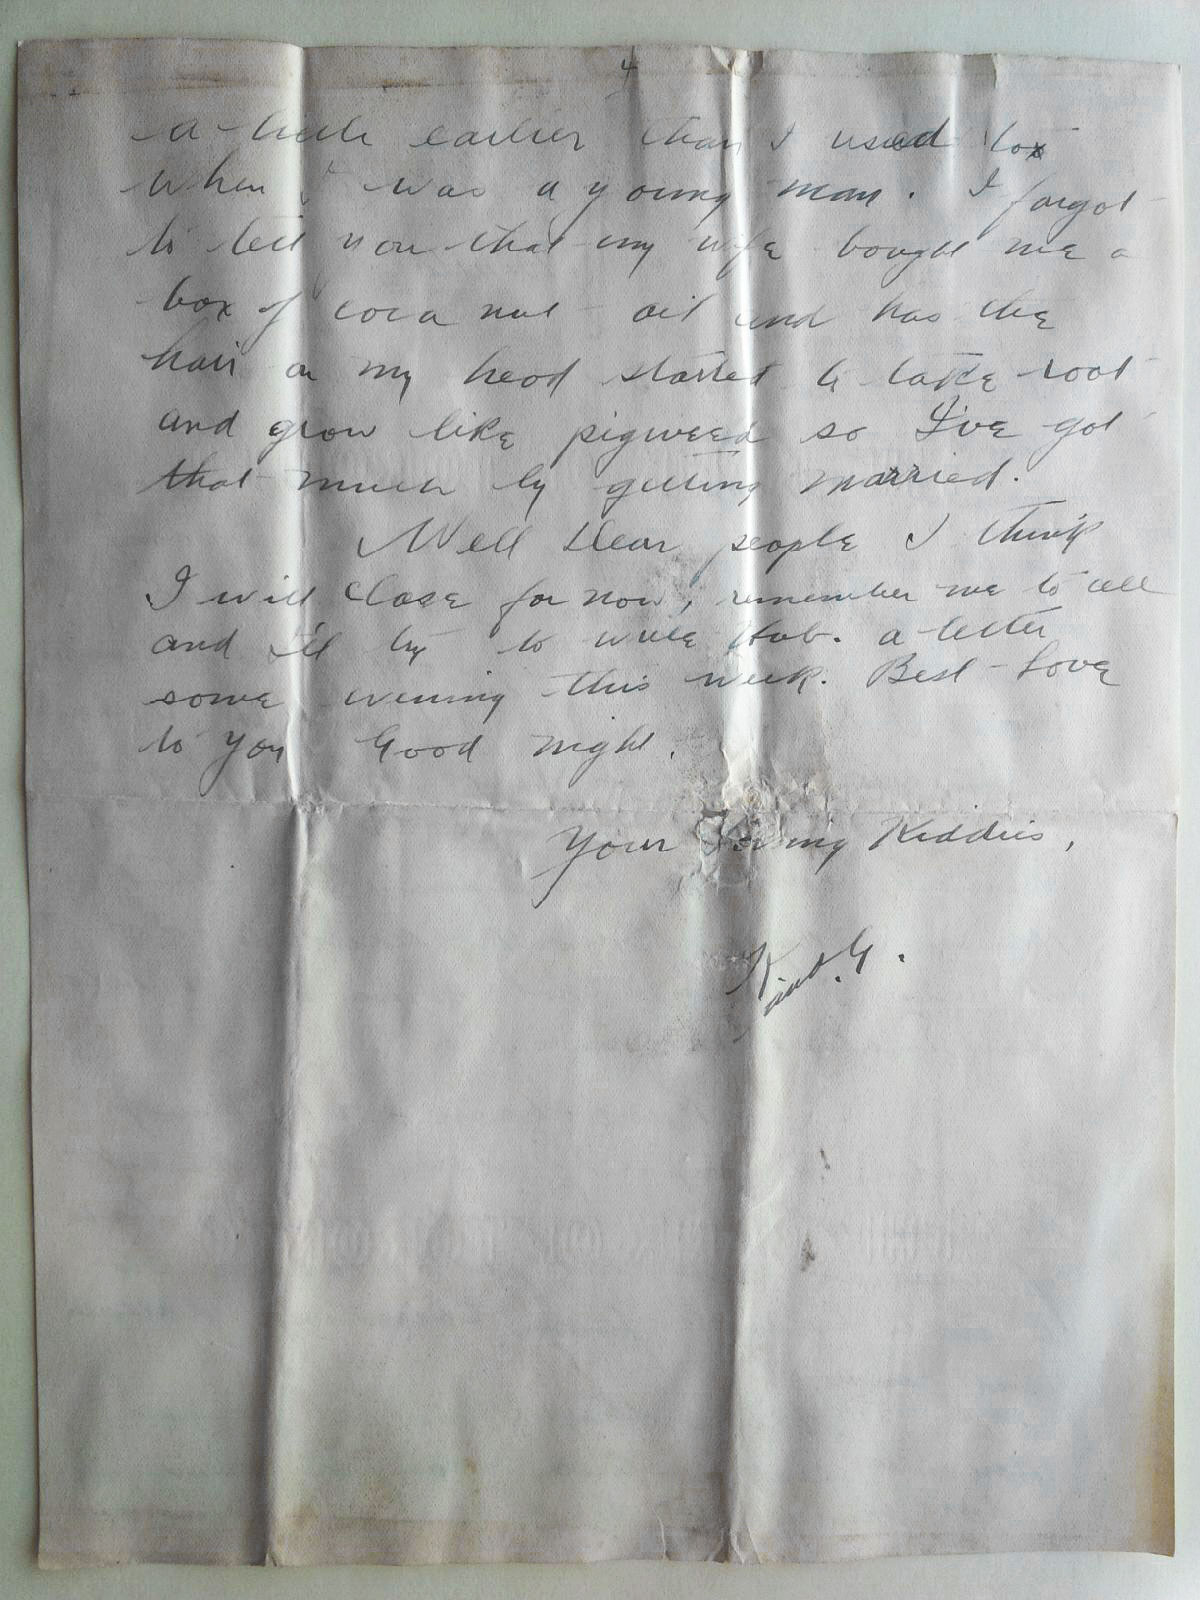 4
a little earlier than I used to
when I was a young man. I forgot
to tell you that my wife bought me a
box of coca nut oil and has the
hair on my head started to take root
and grow like pigweed so I've got
that much by getting married.
Well Dear people I think
I will close for now, remember me to all
and I'll try to write Hub. a letter
some evening this week. Best Love
to you Good night.
Your Loving Kiddies,